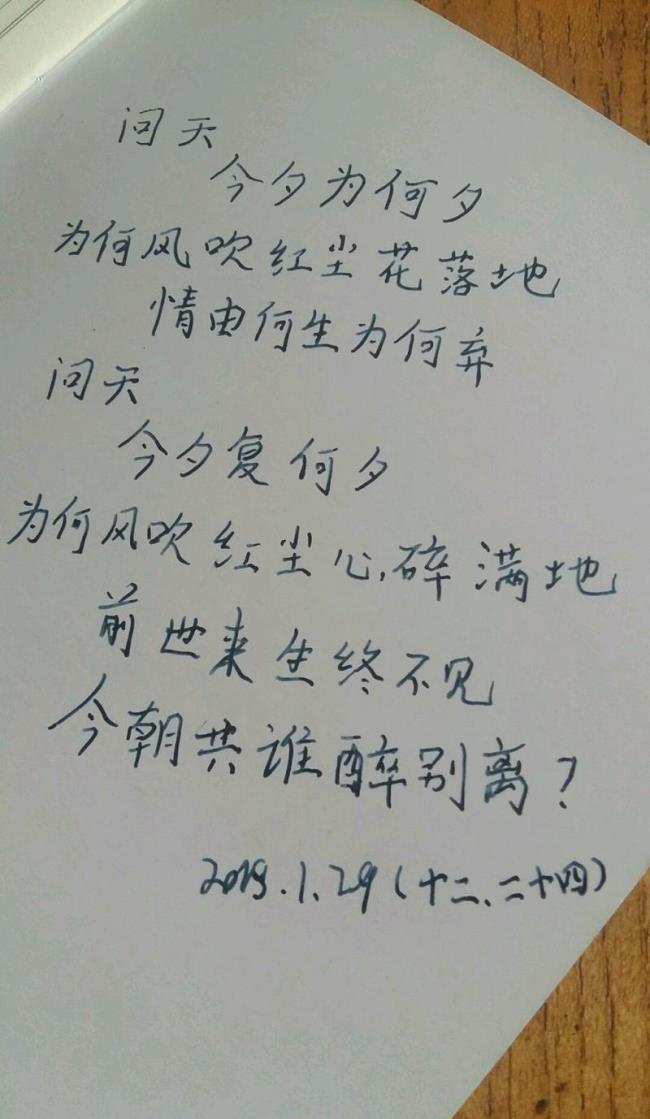 问天
今夕为何夕
为何风吹红尘花落地
情由何生为何弃
问天
今夕复何夕
为何风吹红尘心碎满地
前世来生终不见
今朝共谁醉别离？
2019.1.29(十二、二十四)